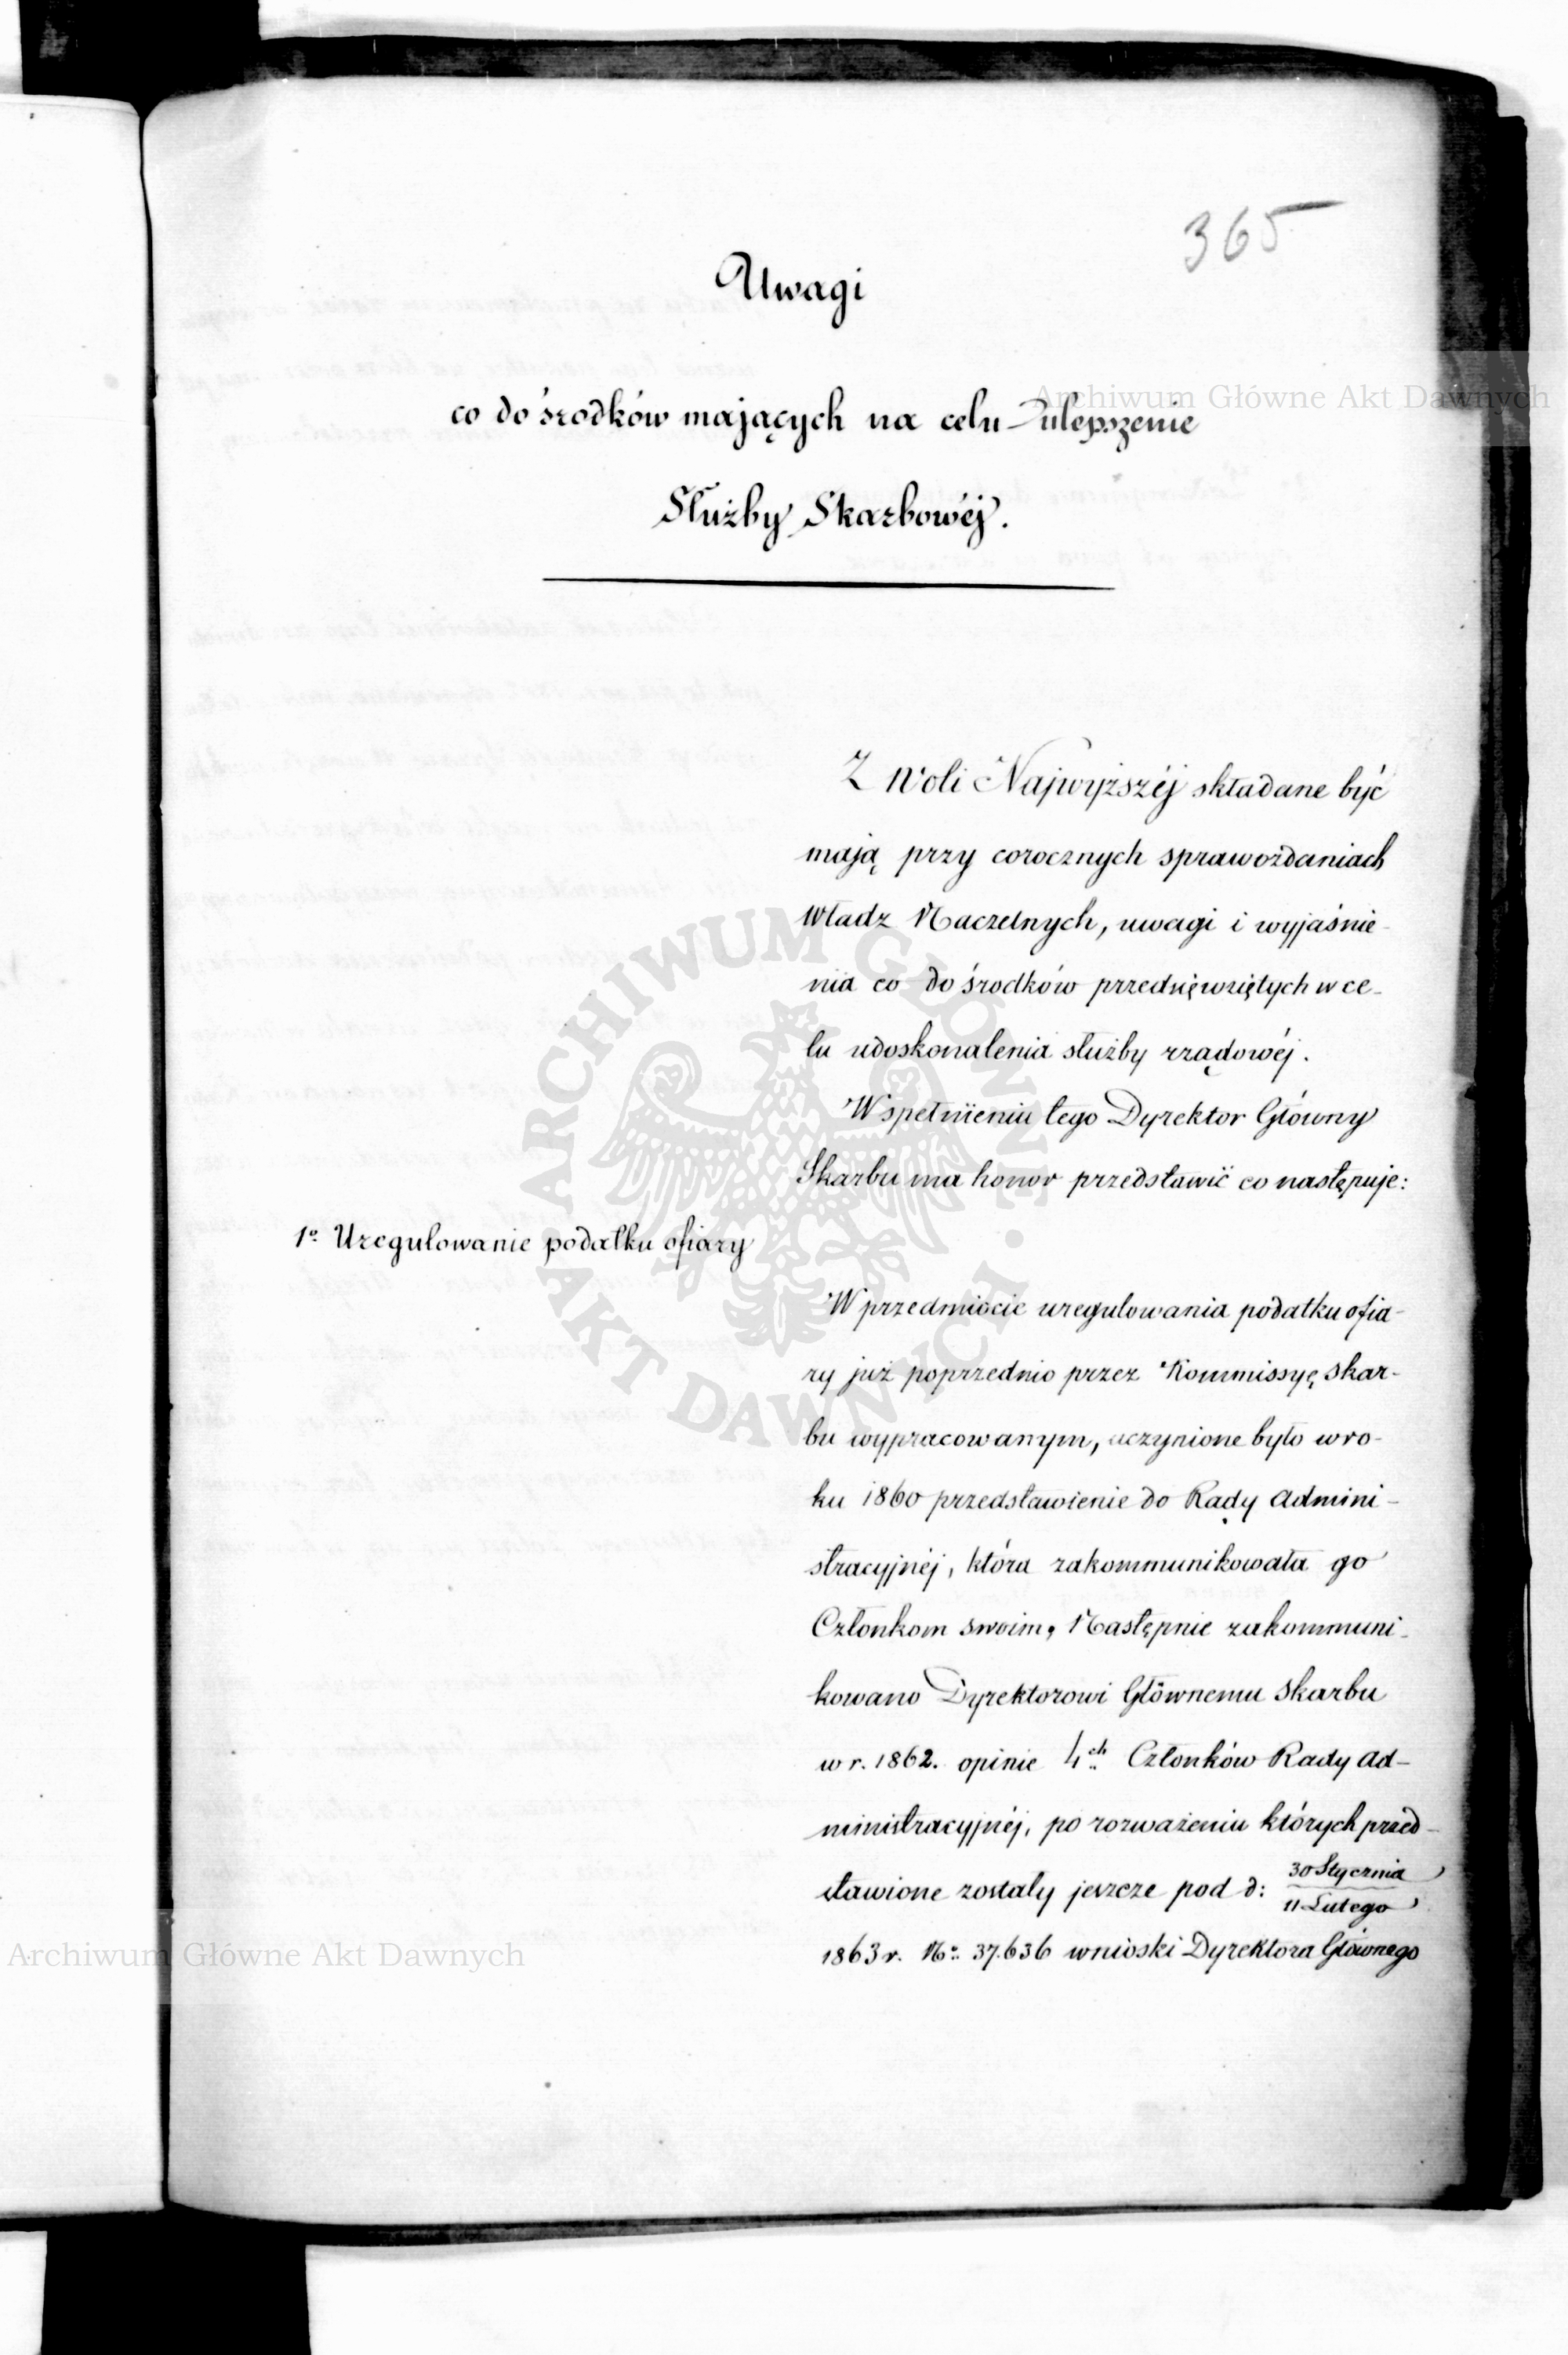 365
Uwagi
co do środków mających na celu ulepszenie
Służby Skarbowéj.
Z Woli Najwyższéj składane być
mają przy corocznych sprawozdaniach
Władz Naczelnych, uwagi i wyjaśnie-
nia co do środków przedsięwziętych w ce-
lu udoskonalenia służby rządowéj.
W spełnieniu tego Dyrektor Główny
Skarbu ma honor przedstawić co następuje:
1o Uregulowanie podatku ofiary
W przedmiocie uregulowania podatku ofia-
ry już poprzednio przez Kommissyę Skar-
bu wypracowanym, uczynione było w ro-
ku 1860 przedstawienie do Rady Admini-
stracyjnéj, która zakommunikowała go
Członkom swoim, Następnie zakommuni-
kowano Dyrektorowi Głównemu Skarbu
w r. 1862. opinie 4ch Członków Rady Ad-
ministracyjnéj, po rozważeniu których przed-
stawione zostały jeszcze pod d: 30 Stycznia
11 Lutego
1863 r. No: 37.636 wnioski Dyrektora Głównego
Archiwum Główne Akt Dawnych
ARCHIWUM GŁÓWNE · AKT DAWNYCH ·
Archiwum Główne Akt Dawnych